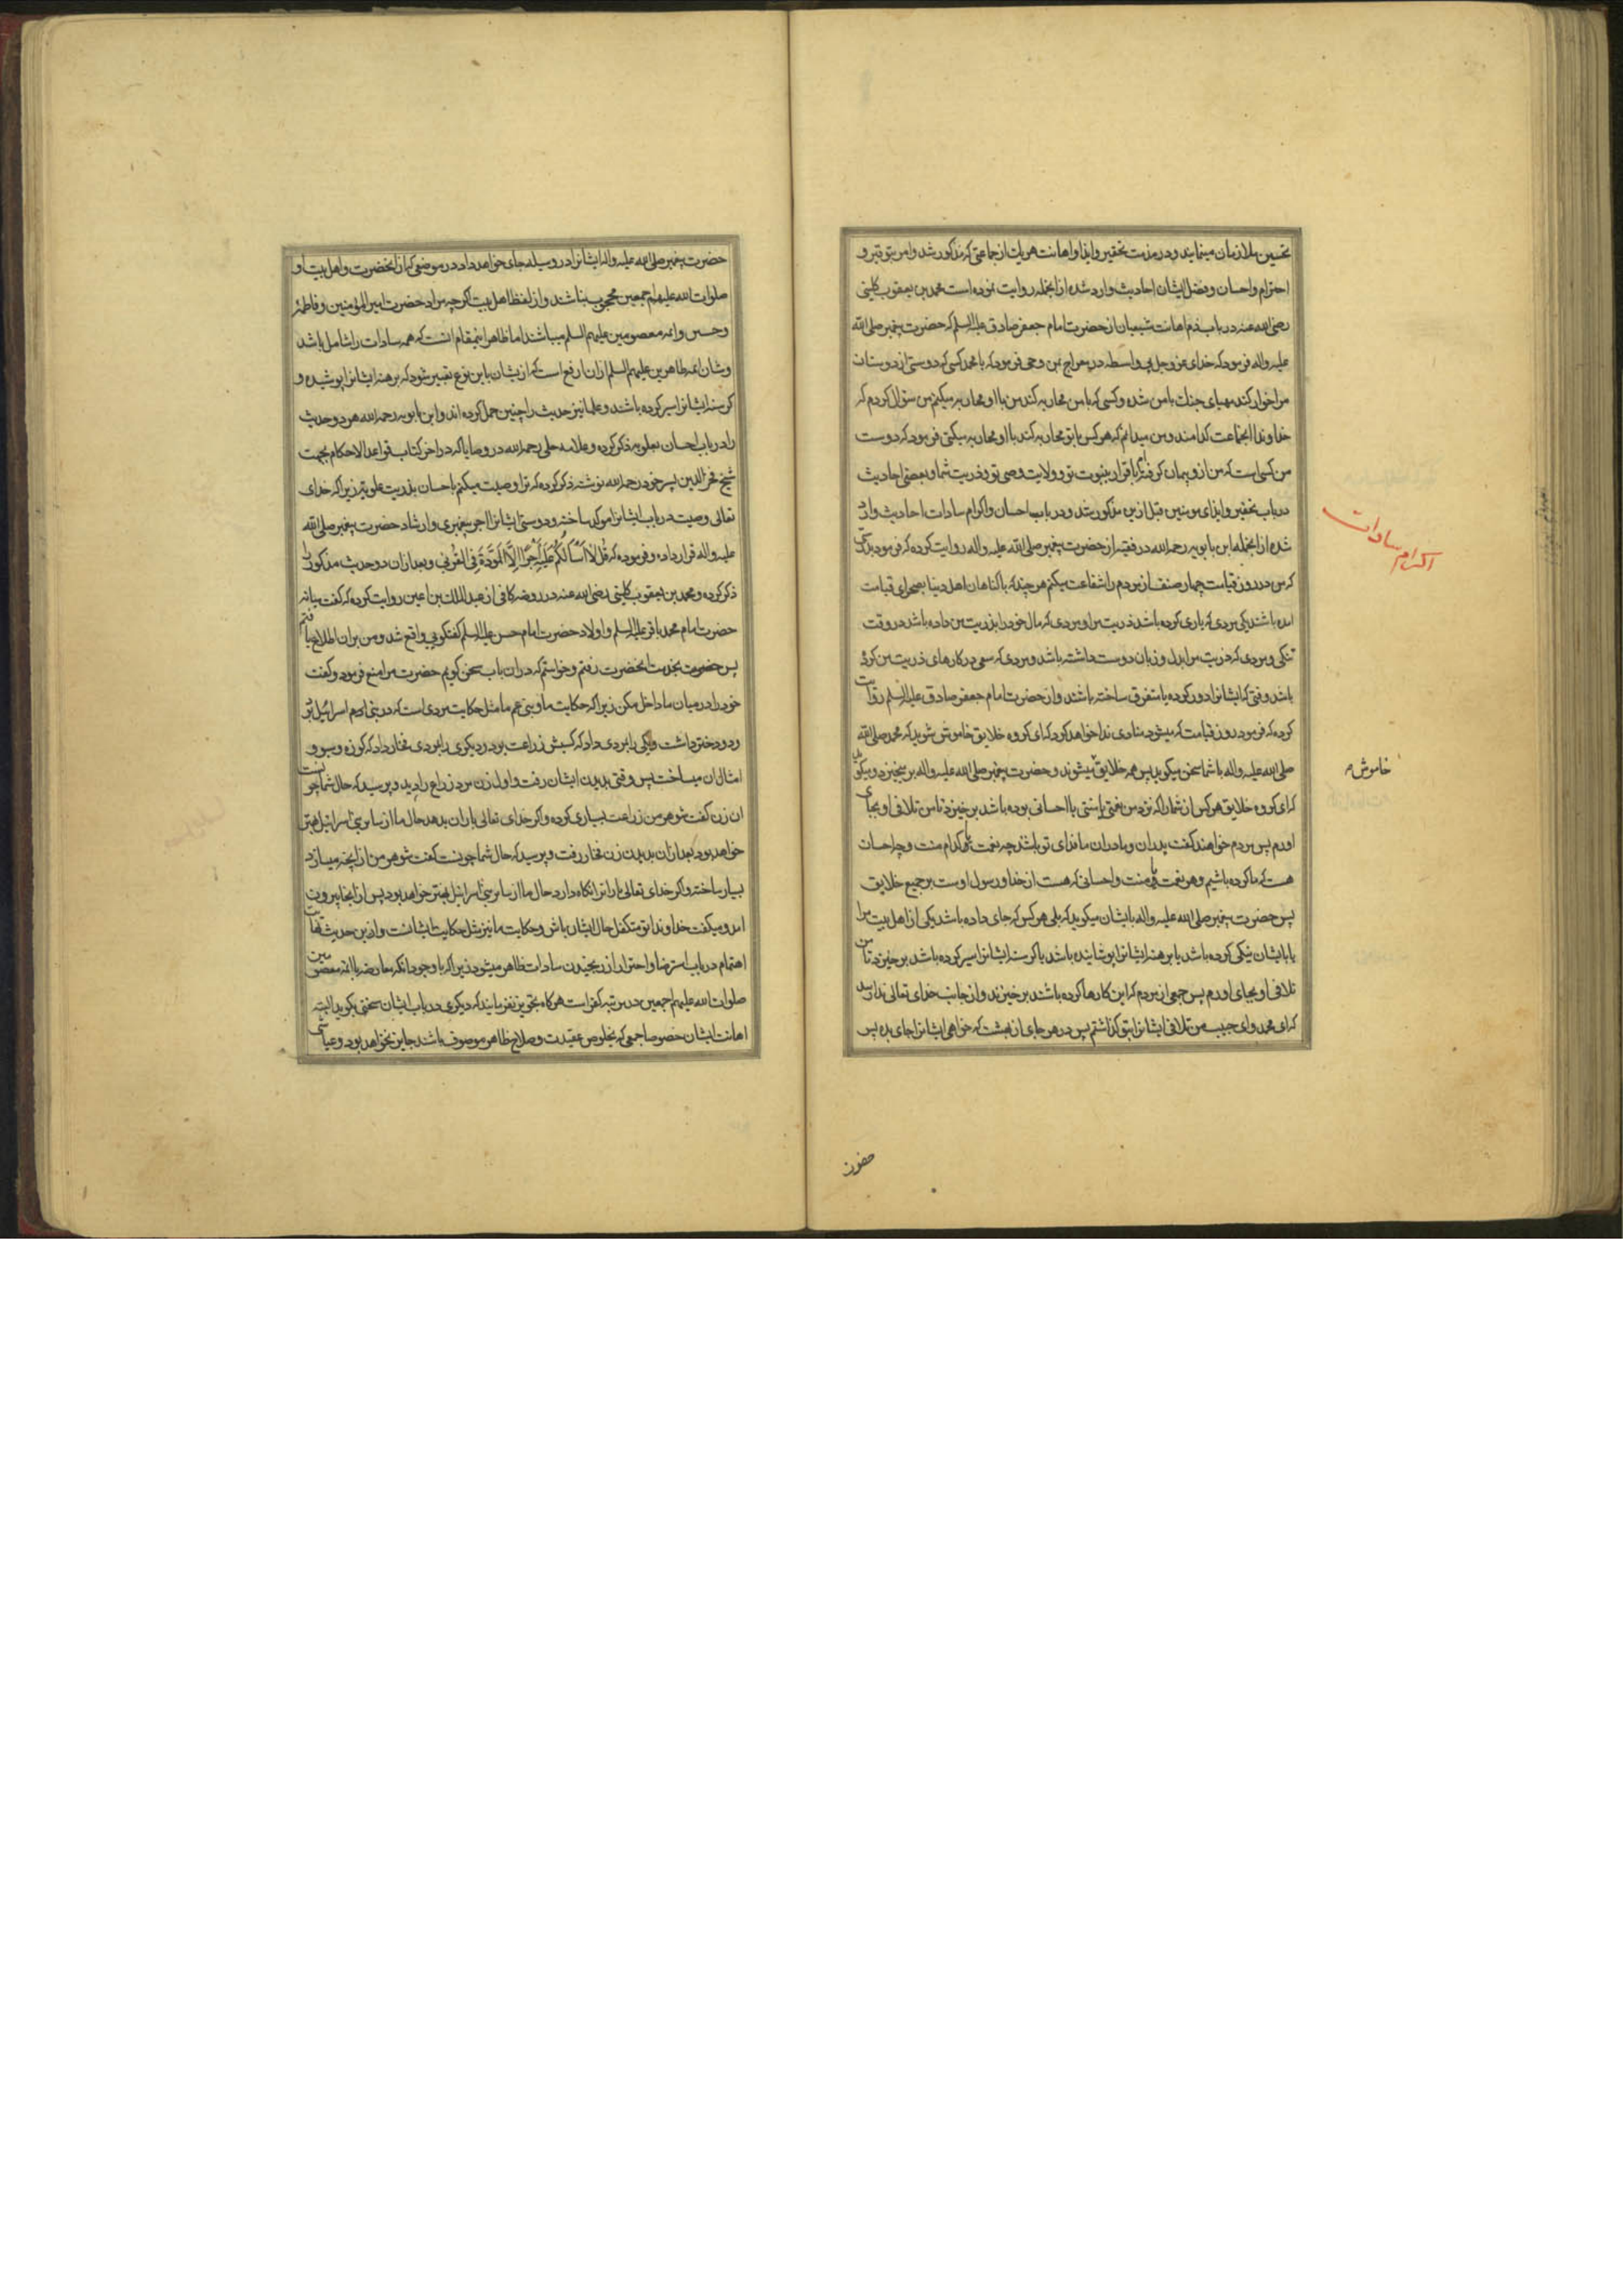 تحسین ملازمان مینمایند و در مذمت تحقیر و ایذا و اهانت هر یک از جماعتی که مذکور شد و امر بتوقیر و
احترام و احسان و فضل ایشان احادیث وارد شده از انجمله روایت نموده است محمد بن یعقوب کلینی
رضی الله عنه در باب ذم اهانت شیعیان از حضرت امام جعفر صادق علیه السلم که حضرت پیغمبر صلی الله
علیه و اله فرمود که خدای عز و جل بی واسطه در معراج بمن وحی فرمود که یا محمد کسی که دوستی از دوستان
مرا خوار کند مهیای جنک با من شده و کسی که با من محاربه کند من با او محاربه میکنم من سؤال کردم که
خداوندا انجماعت کدامند و من میدانم که هر کس با تو محاربه کند با او محاربه میکنی فرمود که دوست
من کسی است که من ازو پیمان کرفته‌ام باقرار بنبوت تو و ولایت وصی تو و ذریت شما و بعضی احادیث
در باب تحقیر و ایذای مومنین قبل ازین مذکور شد و در باب احسان و اکرام سادات احادیث وارد
شده از انجمله ابن بابویه رحمه الله در فقیه از حضرت پیغمبر صلی الله علیه و اله روایت کرده که فرمود بدرستی
که من در روز قیامت چهار صنف از مردم را شفاعت میکنم هر چند که با کناهان اهل دنیا بصحرای قیامت
امده باشند یکی مردی که یاری کرده باشد ذریت مرا و مردی که مال خود را بذریت من داده باشد در وقت
تنکی و مردی که ذریت مرا بدل و زبان دوست داشته باشد و مردی که سعی در کارهای ذریت من کرده
باشد وقتی که ایشانرا دور کرده یا متفرق ساخته باشند و از حضرت امام جعفر صادق علیه السلم روایت
کرده که فرمود روز قیامت که میشود منادی ندا خواهد کرد که ای کروه خلایق خاموش شوید که محمد صلی الله
صلی الله علیه و اله با شما سخن میکوید پس همه خلایق میشوند و حضرت پیغمبر صلی الله علیه و اله بر میخیزد و میکوید
که ای کروه خلایق هر کس از شما را که نزد من نعمتی یا منتی یا احسانی بوده باشد بر خیزد تا من تلافی او بجای
اورم پس مردم خواهند کفت پدران و مادران ما فدای تو باشد چه نعمت یا کدام منت و چه احسان
هست که ما کرده باشیم و هر نعمت یا منت و احسانی که هست از خدا و رسول اوست بر جمیع خلایق
پس حضرت پیغمبر صلی الله علیه و اله بایشان میکوید که بلی هر کس که جای داده باشد یکی از اهل بیت مرا
یا بایشان نیکی کرده باشد یا برهنه ایشانرا پوشانیده باشد یا کرسنه ایشانرا سیر کرده باشد بر خیزد تا من
تلافی او بجای اورم پس جمعی از مردم که این کارها کرده باشند بر خیزند و از جانب خدای تعالی ندا رسد
که ای محمد و ای حبیب من تلافی ایشانرا بتو کذاشتم پس در هر جای از بهشت که خواهی ایشانرا جای بده پس
اکرام سادات
خاموش
حضرت
حضرت پیغمبر صلی الله علیه و اله ایشانرا در وسیله جای خواهد داد در موضعی که از انحضرت و اهل بیت او
صلوات الله علیهم اجمعین محجوب نباشند و از لفظ اهل بیت اکرچه مراد حضرت امیر المؤمنین و فاطمه
و حسنین و ائمه معصومین علیهم السلم میباشند اما ظاهر اینمقام انست که همه سادات را شامل باشد
و شان ائمه طاهرین علیهم السلم ازان ارفع است که از ایشان باین نوع تعبیر شود که برهنه ایشانرا پوشیده و
کرسنه ایشانرا سیر کرده باشند و علما نیز حدیث را چنین حمل کرده اند و ابن بابویه رحمه الله هر دو حدیث
را در باب احسان بعلویه ذکر کرده و علامه حلی رحمه الله در وصایا که در اخر کتاب قواعد الاحکام بجهت
شیخ فخر الدین پسر خود رحمه الله نوشته ذکر کرده که ترا وصیت میکنم باحسان بذریت علویه زیرا که خدای
تعالی وصیت در باب ایشانرا موکد ساخته و دوستی ایشانرا اجر پیغمبری و ارشاد حضرت پیغمبر صلی الله
علیه و اله قرار داده و فرموده که قُل لا أسألُكُم عَلَيهِ أجرًا إلّا المَوَدَّةَ فِي القُربى و بعد ازان دو حدیث مذکور را
ذکر کرده و محمد بن یعقوب کلینی رضی الله عنه در روضه کافی از عبد الملک بن اعین روایت کرده که کفت میانه
حضرت امام محمد باقر علیه السلم و اولاد حضرت امام حسن علیه السلم کفتکویی واقع شد و من بران اطلاع یافتم
پس بخدمت انحضرت رفتم و خواستم که دران باب سخن کویم حضرت مرا منع فرمود و کفت
خود را در میان ما داخل مکن زیرا که حکایت ما و بنی عم ما مثل حکایت مردی است که در بنی اسرائیل بود
و دو دختر داشت و یکی را بمردی داد که کسبش زراعت بود و دیکری را بمردی فخار داد که کوزه و سبو و
امثال ان میساخت پس وقتی بدیدن ایشان رفت و اول زن مرد زراع را دید و پرسید که حال شما چونست
ان زن کفت شوهر من زراعت بسیاری کرده و اکر خدای تعالی باران بدهد حال ما از سایر بنی اسرائیل بهتر
خواهد بود بعد ازان بدیدن زن فخار رفت و پرسید که حال شما چونست کفت شوهر من از انچه میسازد
بسیار ساخته و اکر خدای تعالی بارانرا نکاه دارد حال ما از سایر بنی اسرائیل بهتر خواهد بود پس از انجا بیرون
امد و میکفت خداوندا تو متکفل حال ایشان باش و حکایت ما نیز مثل حکایت ایشانست و ازین حدیث نهایت
اهتمام در باب استرضا و احتراز از رنجیدن سادات ظاهر میشود زیرا که با وجود انکه معارضه با ائمه معصومین
صلوات الله علیهم اجمعین در مرتبه کفر است هر کاه تجویز نفرمایند که دیکری در باب ایشان سخنی بکوید البته
اهانت ایشان خصوصا جمعی که بخلوص عقیدت و صلاح ظاهر موصوف باشند جایز نخواهد بود و عیاشی